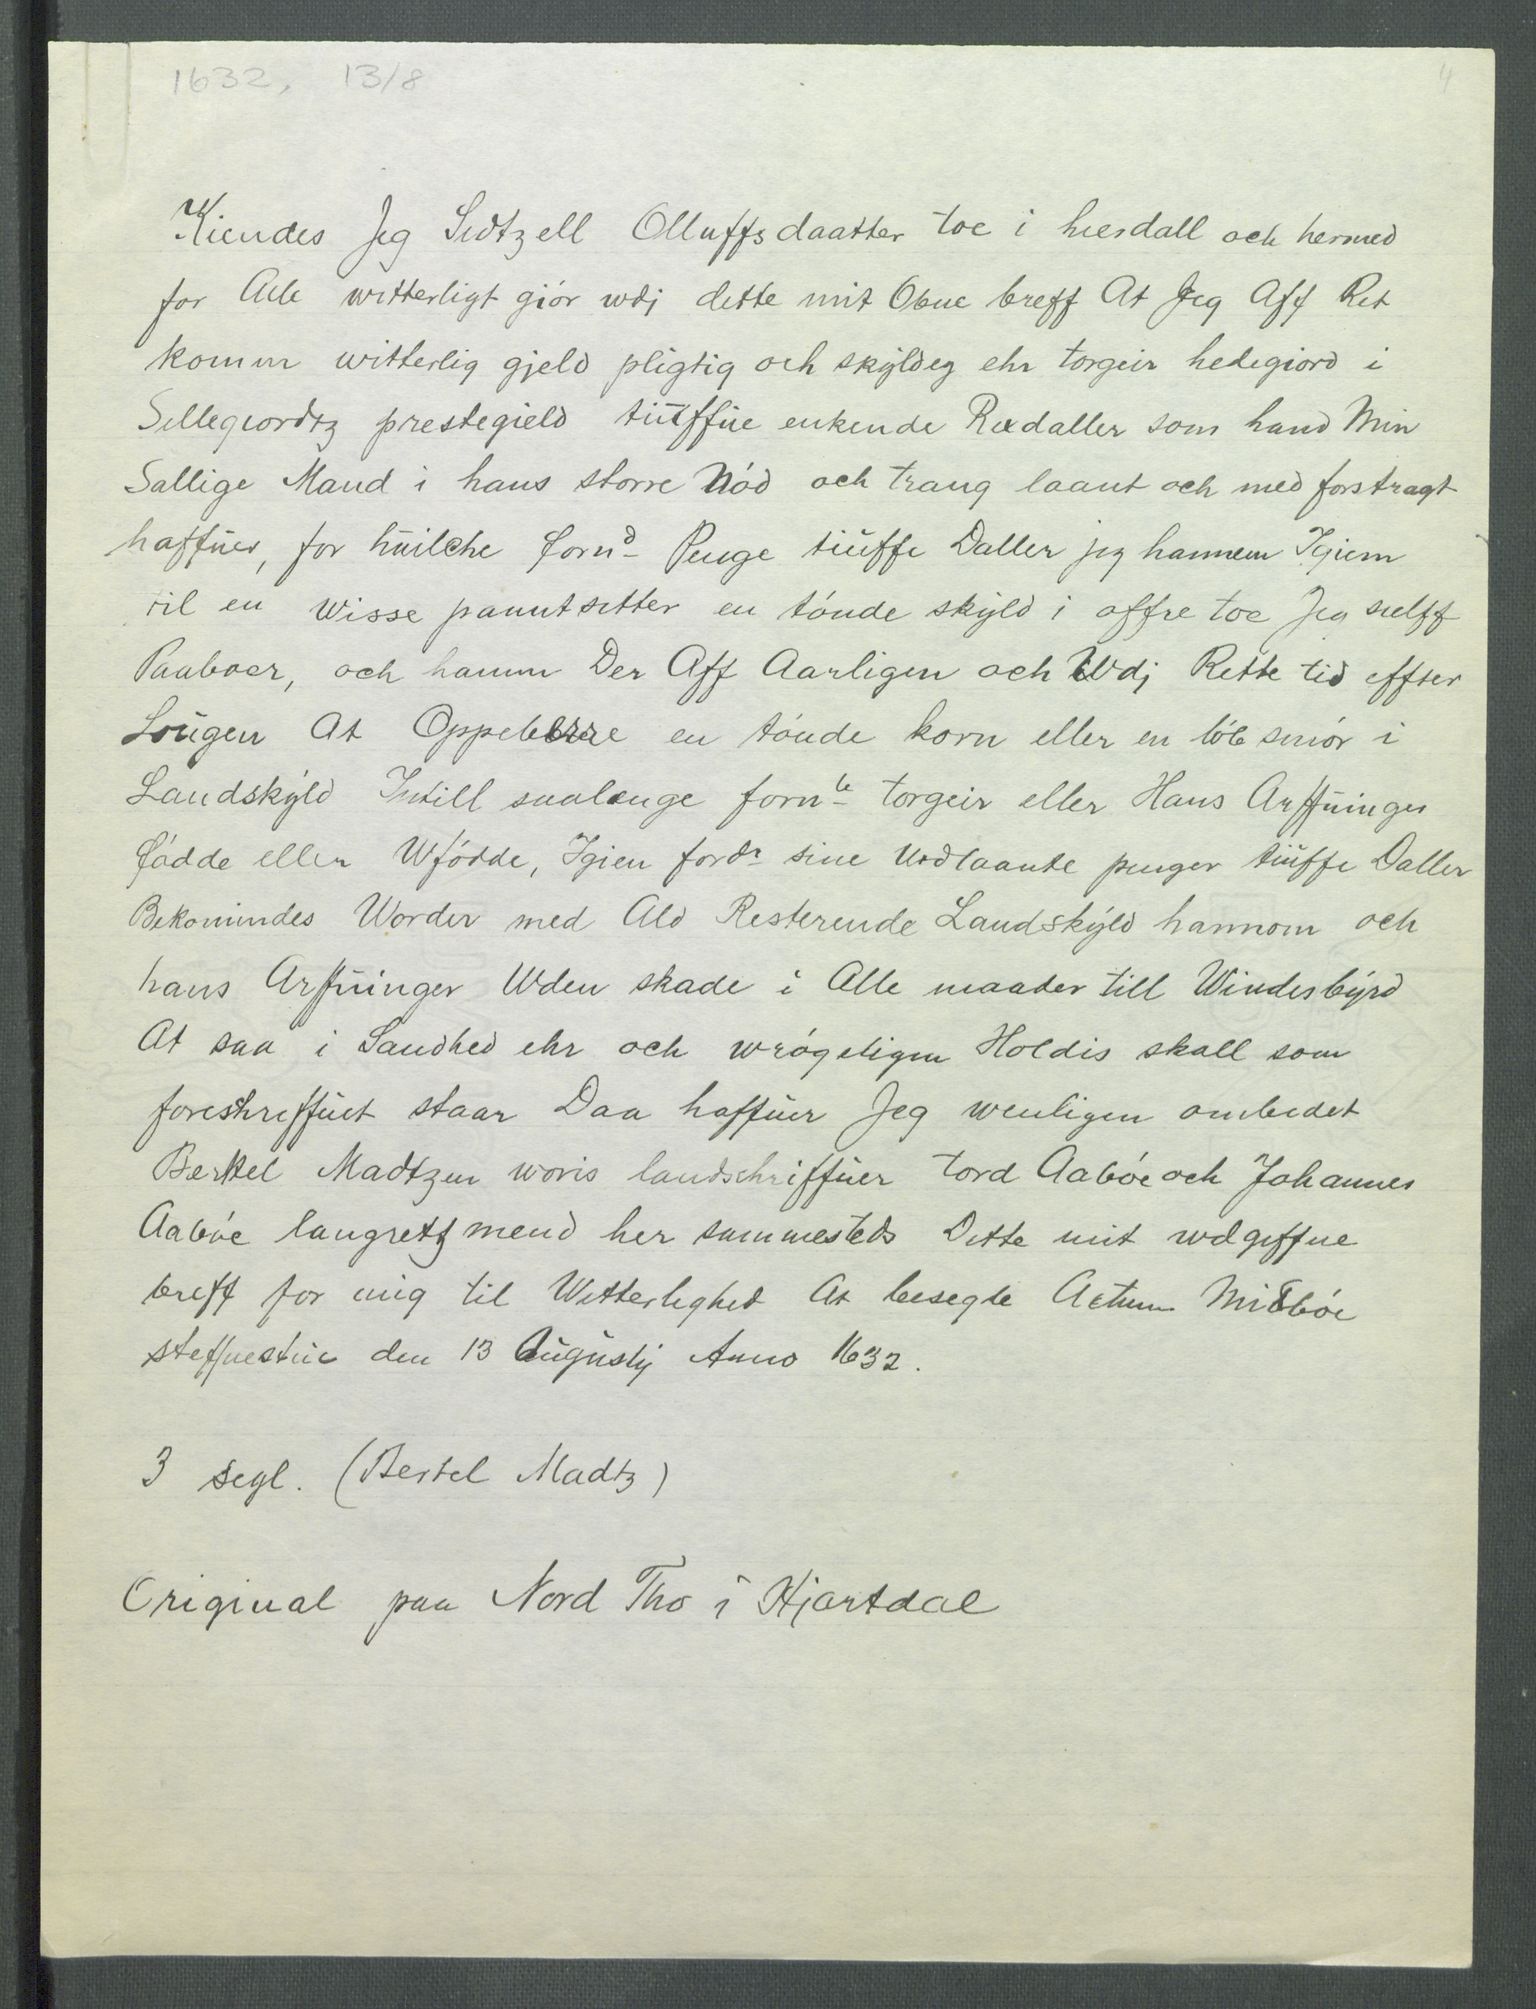 1632, 13/8
4
Kiendes Jeg Sidtzell Olluffsdaatter toe i hierdall och hermed
for Alle witterligt giór wdj dette mit Obne breff At Jeg Aff Ret
kommn witterlig gjeld pligtig och skÿldig ehr torgeir hedegiord i
Sillegiordtz prestegield tiüffüe enkende Rixdaller som hand Min
Sallige Mand i hans storre Nód och trang laant och med forstragt
haffüer, for hüilche fornd Penge tiüffe Daller jeg hannem Igiem
til en wisse panntsetter en tónde skÿld i offre toe Jeg sielff
Paaboer, och hamm Der Aff Aarligen och Wdj Rette tid effter
Loügen At Oppeberre en tónde korn eller en lób smór i
Landskÿld Intill saalenge fornte torgeir eller Hans Arffüinger
fódde eller Wfódde, Igien fordr sine Udlaante penger tiüffe Daller
Bekommdes Worder med Ald Resterende Landskÿld hannom och
hans Arffüinger Uden skade i Alle maader till Windesbÿrd
At saa i Sandhed ehr och wrógeligen Holdis skall som
foreskreffüet staar Daa haffüer Jeg wenligen ombedet
Bertel Madtzen woris landschriffüer tord Aabóe och Johannes
Aabóe laugretz mend her sammesteds Dette mit wdgiffne
breff for mig til Witterlighed At besegle Actum Midbóe
steffnestüe den 13 Aügüstj Anno 1632.
3 segl. (Bertel Madtz)
Original paa Nord Tho i Hjartdal